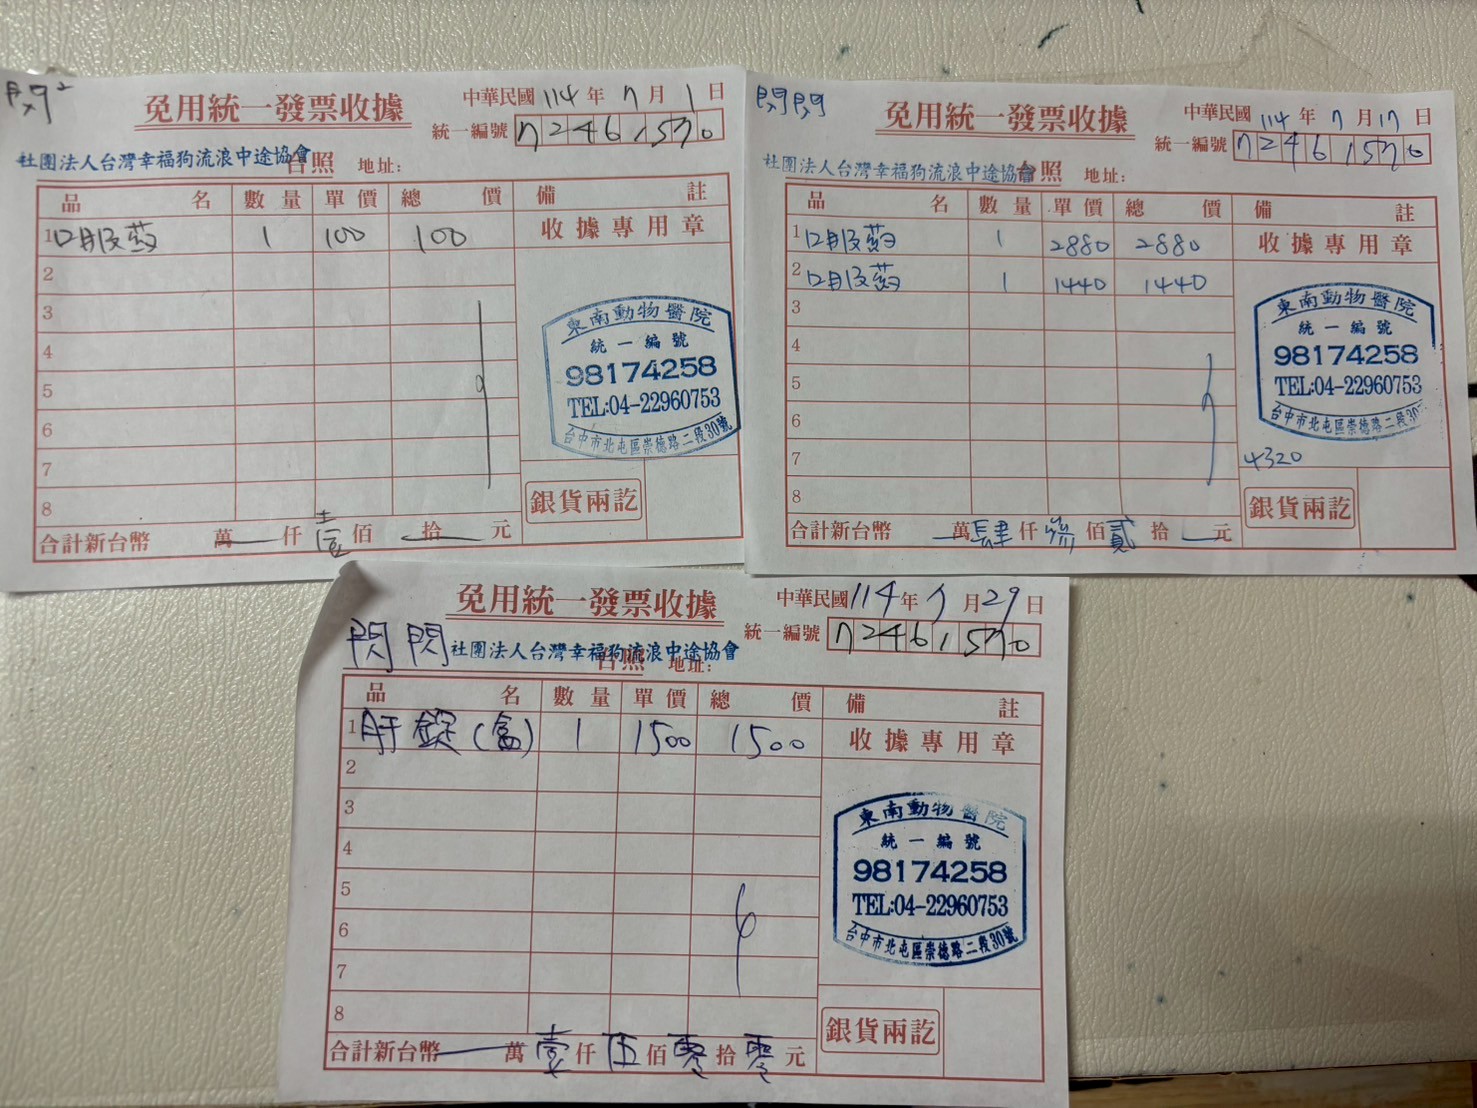 閃²
免用統一發票收據
中華民國114年7月1日
統一編號 72461570
社團法人台灣幸福狗流浪中途協會 台照 地址:
品名 數量 單價 總價 備註
1 口服葯 1 100 100 收據專用章
2
3
4
5
6
7
8
東南動物醫院
統一編號
98174258
TEL:04-22960753
台中市北屯區崇德路二段30號
銀貨兩訖
合計新台幣 萬 仟 壹 佰 拾 元
閃閃
免用統一發票收據
中華民國114年7月17日
統一編號 72461570
社團法人台灣幸福狗流浪中途協會 台照 地址:
品名 數量 單價 總價 備註
1 口服葯 1 2880 2880 收據專用章
2 口服葯 1 1440 1440
3
4
5
6
7
8
東南動物醫院
統一編號
98174258
TEL:04-22960753
台中市北屯區崇德路二段30
4320
銀貨兩訖
合計新台幣 萬 肆 仟 佰 貳 拾 元
免用統一發票收據
中華民國114年7月29日
統一編號 72461570
閃閃 社團法人台灣幸福狗流浪中途協會 台照 地址:
品名 數量 單價 總價 備註
1 肝錠(盒) 1 1500 1500 收據專用章
2
3
4
5
6
7
8
東南動物醫院
統一編號
98174258
TEL:04-22960753
台中市北屯區崇德路二段30號
銀貨兩訖
合計新台幣 萬 壹 仟 伍 佰 零 拾 零 元